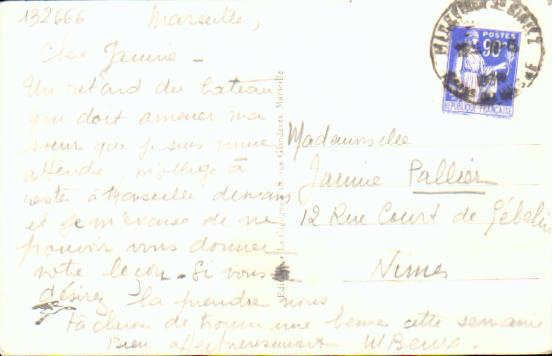 132666
Marseille,
Chère Janine -
Un retard du bateau
qui doit amener ma
sœur que je suis venue
attendre, m'oblige à
rester à Marseille
et je m'excuse de ne
pouvoir vous donner
votre leçon. Si vous
désirez la prendre nous
tâcherons de trouver une heure cette semaine
Bien affectueusement
Mademoiselle
Janine Pallier
12 Rue Court de Gébelin
Nîmes
POSTES
90c
RÉPUBLIQUE FRANÇAISE
Marseille